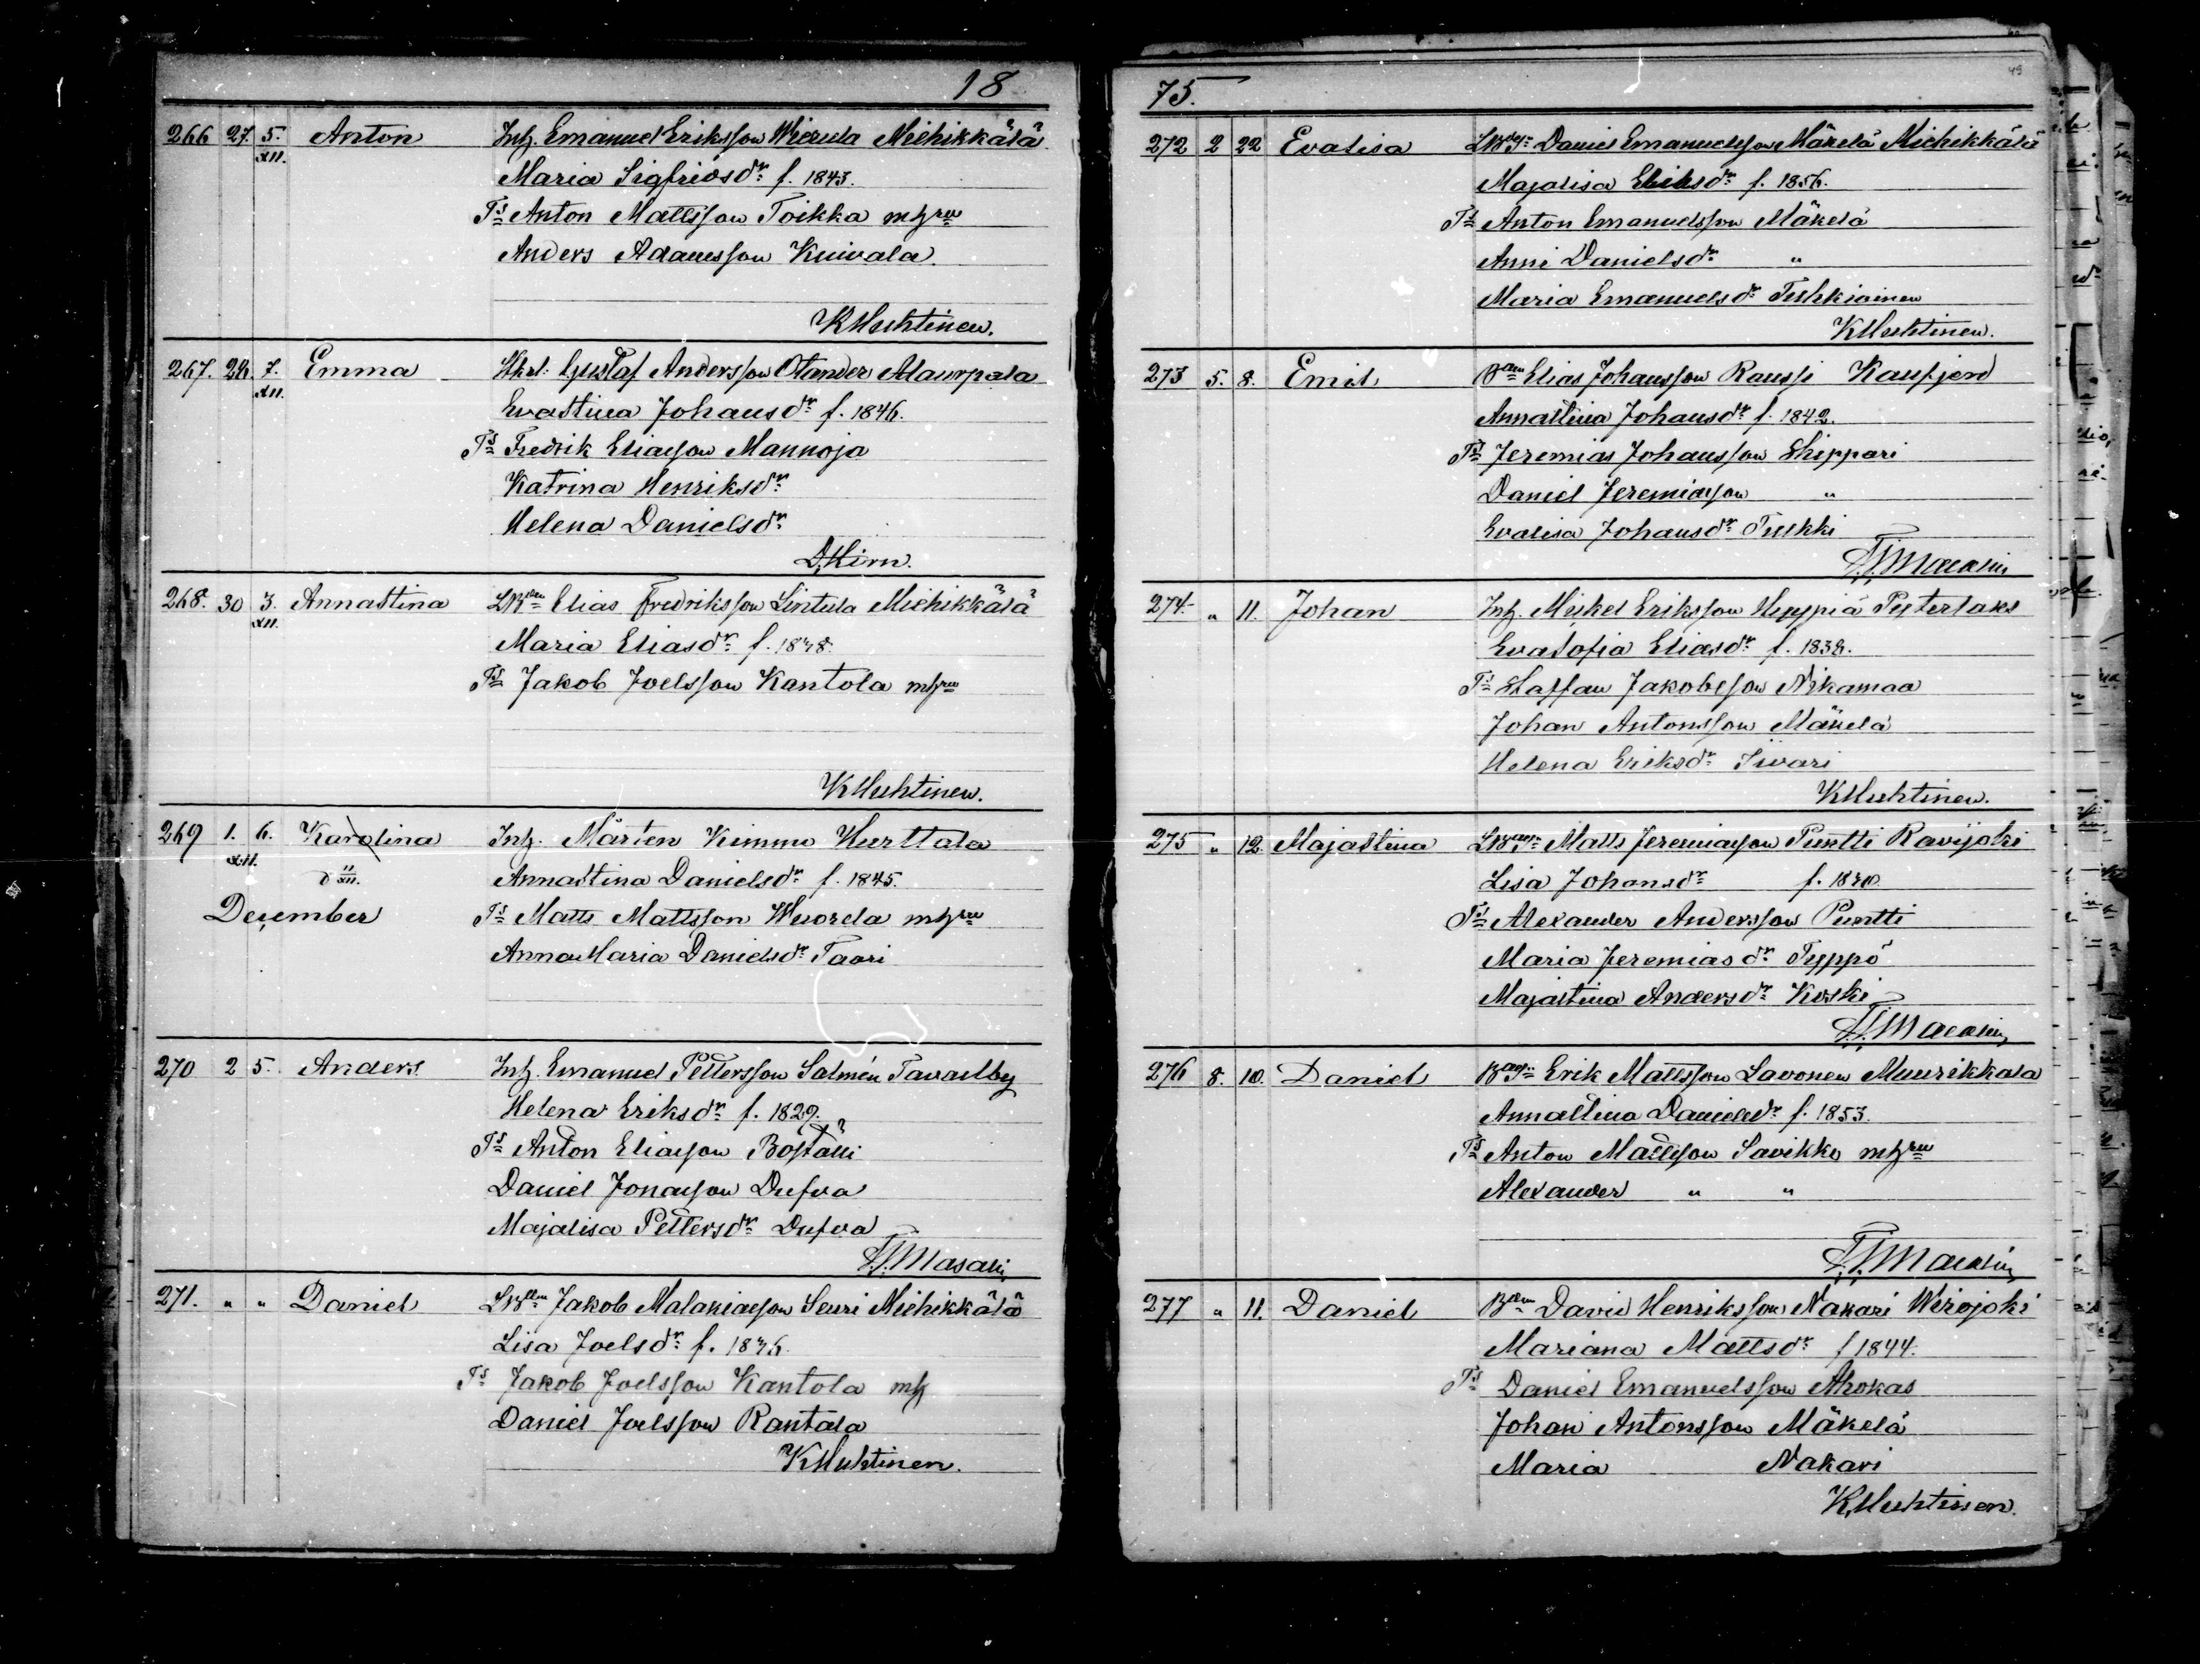 18
266 27. 5. Anton Inh. Emanuel Eriksson Wierula Miehikkälä
XII. Maria Sigfridsdr f. 1843.
Ts Anton Mattsson Toikka m hru
Anders Adamsson Kuivala.
K Huhtinen.
267. 24. 7. Emma Gustaf Andersson Otander Muurpala
XII. Evastina Johansdr f. 1846.
Ts Fredrik Eliasson Mannoja
Katrina Henriksdr
Helena Danielsdr
D. Hirn.
268. 30 3. Annastina LBden Elias Fredriksson Lintula Miehikkälä
XII. Maria Eliasdr f. 1848.
Ts Jakob Joelsson Kantola m hru
K Huhtinen.
269 1. 6. Karolina Inh. Mårten Kimmo Hurttala
XII. d 11 XII. Annastina Danielsdr f. 1845.
December Ts Matts Mattsson Wuorela m hru
Anna Maria Danielsdr Taari
270 2 5. Anders Inh. Emanuel Pettersson Salmén Tavastby
Helena Eriksdr f. 1829.
Ts Anton Eliasson
Daniel Jonasson Dufva
Majalisa Pettersdr Dufva
F. J. Masalin
271. " " Daniel LBden Jakob Malakiasson Seuri Miehikkälä
Lisa Joelsdr f. 1846.
Ts Jakob Joelsson Kantola m h
Daniel Joelsson Rantala
K Huhtinen.
75.
49
272 2 22 Evalisa Daniel Emanuelsson Mäkelä Miehikkälä
Majalisa Eliasdr f. 1856.
Ts Anton Emanuelsson Mäkelä
Anni Danielsdr "
Maria Emanuelsdr Tuhkiainen
K Huhtinen.
273 5. 8. Emil Bden Elias Johansson Raussi
Annastina Johansdr f. 1842.
Ts Jeremias Johansson Skippari
Daniel Jeremiasson "
Evalisa Johansdr Tuhkki
F. J. Masalin
274. " 11. Johan Inh. Mickel Eriksson Hyypiä Pyterlaks
Evasofia Eliasdr f. 1832.
Ts Staffan Jakobsson Nikamaa
Johan Antonsson Mäkelä
Helena Eriksdr Iivari
K Huhtinen.
275 " 12. Majastina Matts Jeremiasson Puntti Ravijoki
Lisa Johansdr f. 1840.
Ts Alexander Andersson Puntti
Maria Jeremiasdr Typpö
Majastina Andersdr Koski
F. J. Masalin
276 8. 10. Daniel Erik Mattsson Lavonen Muurikkala
Annastina Danielsdr f. 1853.
Ts Anton Mattsson Savikko m hru
Alexander " "
F. J. Masalin
277 " 11. Daniel Bden David Henriksson Nakari Wirojoki
Mariana Mattsdr f 1844.
Ts Daniel Emanuelsson Ahokas
Johan Antonsson Mäkelä
Maria Nakari
K Huhtinen.